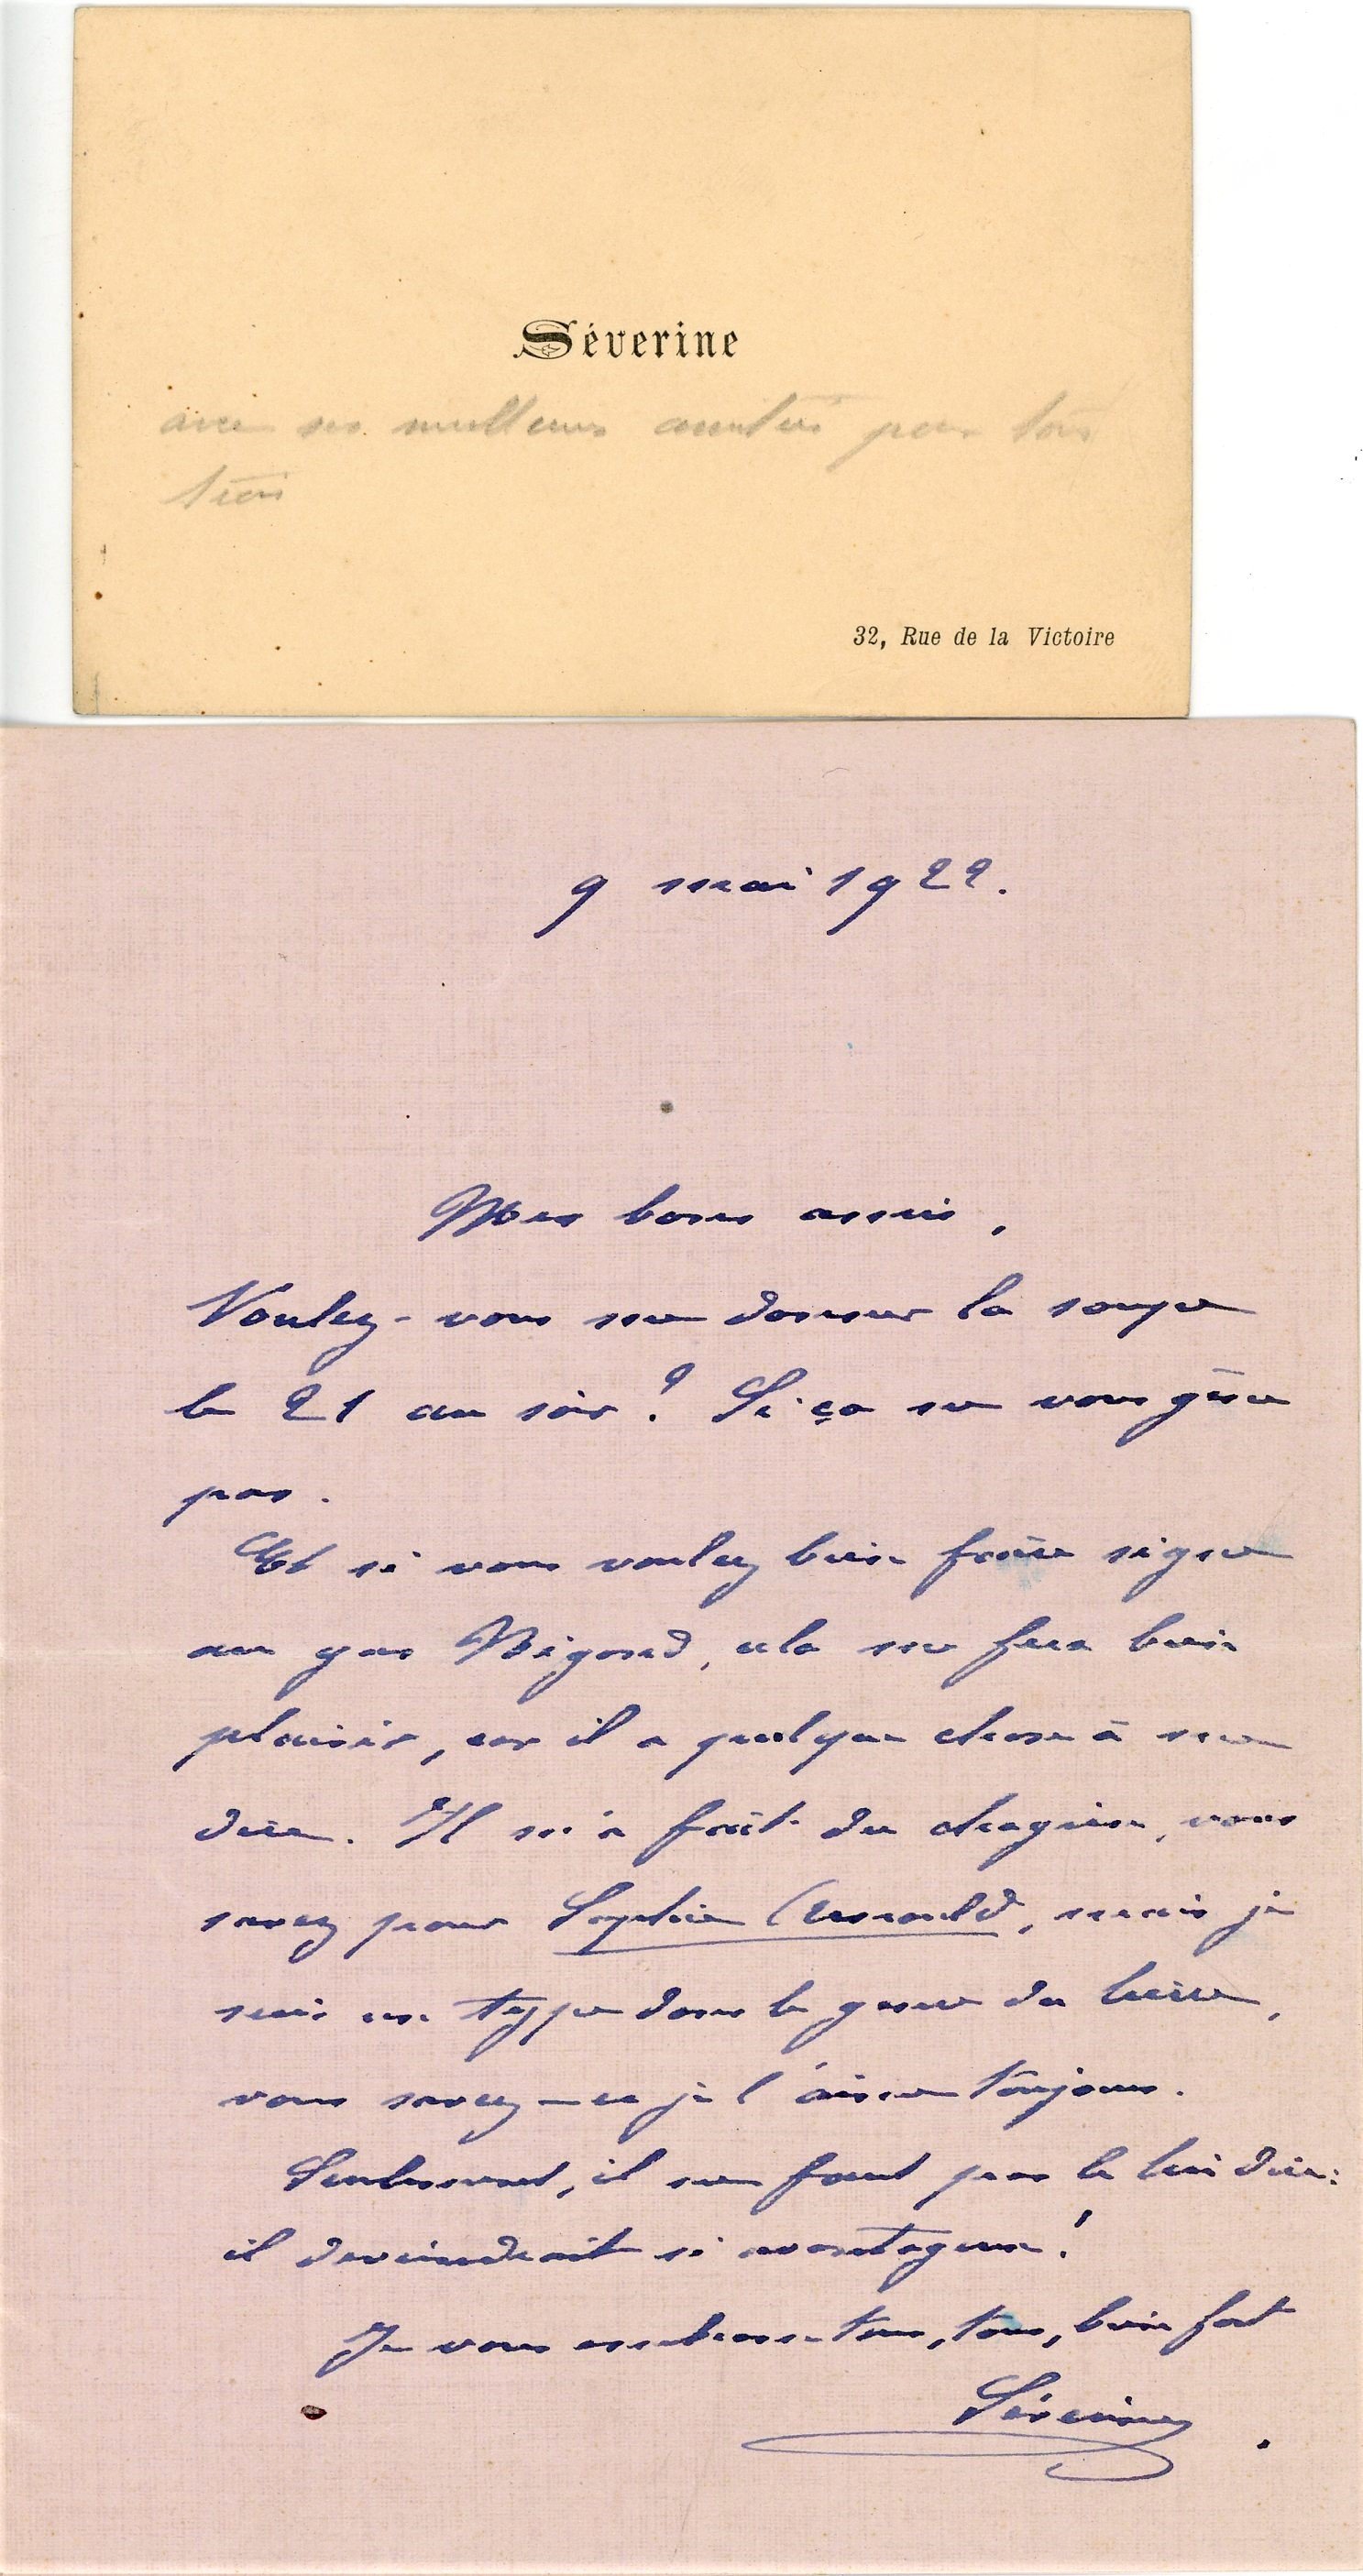 Séverine
avec ses meilleures amitiés pour tous
trois
32, Rue de la Victoire
9 mai 1922.
Mes bons amis,
Voulez-vous me donner la soupe
le 21 au soir? Si ça ne vous gêne
pas.
Et si vous voulez bien faire signe
au gas Bigond, cela me fera bien
plaisir, car il a quelque chose à me
dire. Il m'a fait du chagrin, vous
savez pour Sophie Arnould, mais je
suis un type dans le genre du lierre,
vous savez — et je l'aime toujours.
Seulement, il ne faut pas le lui dire:
il deviendrait si avantageux!
Je vous embrasse tous, tous, bien fort
Séverine.